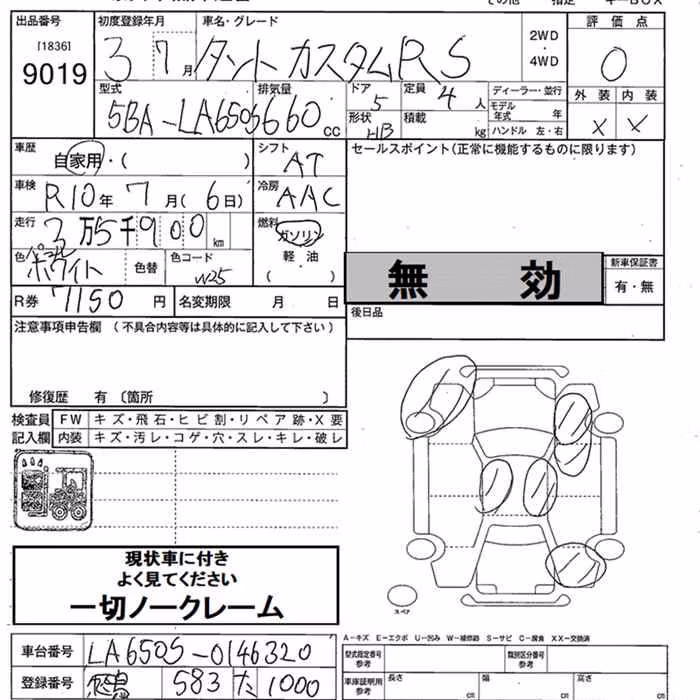 出品番号 初度登録年月 車名・グレード 評価点
[1836]
9019
3 7月 タント カスタム RS
2WD
・
4WD
0
型式 排気量 ドア 定員 ディーラー・並行 外装 内装
5BA-LA650S 660 cc 5 4人
モデル年式 年
形状 積載 ハンドル 左・右
HB kg
X X
車歴 自家用・( ) シフト AT セールスポイント(正常に機能するものに限ります)
車検 R10年 7月( 6日) 冷房 AAC
走行 3万5千900km 燃料 ガソリン
軽油
( )
色 ホワイト 色替 色コード W25
無 効
新車保証書
有・無
R券 7150円 名変期限 月 日
後日品
注意事項申告欄 (不具合内容等は具体的に記入して下さい)
修復歴 有〔箇所 〕
検査員 FW キズ・飛石・ヒビ割・リペア跡・X要
記入欄 内装 キズ・汚レ・コゲ・穴・スレ・キレ・破レ
現状車に付き
よく見てください
一切ノークレーム
スペア
A-キズ E-エクボ U-凹み W-補修跡 S-サビ C-腐食 XX-交換済
車台番号 LA650S-0146320
型式指定番号 参考 類別区分番号 参考
登録番号 583 た 1000
車庫証明用 参考 長さ cm 幅 cm 高さ cm